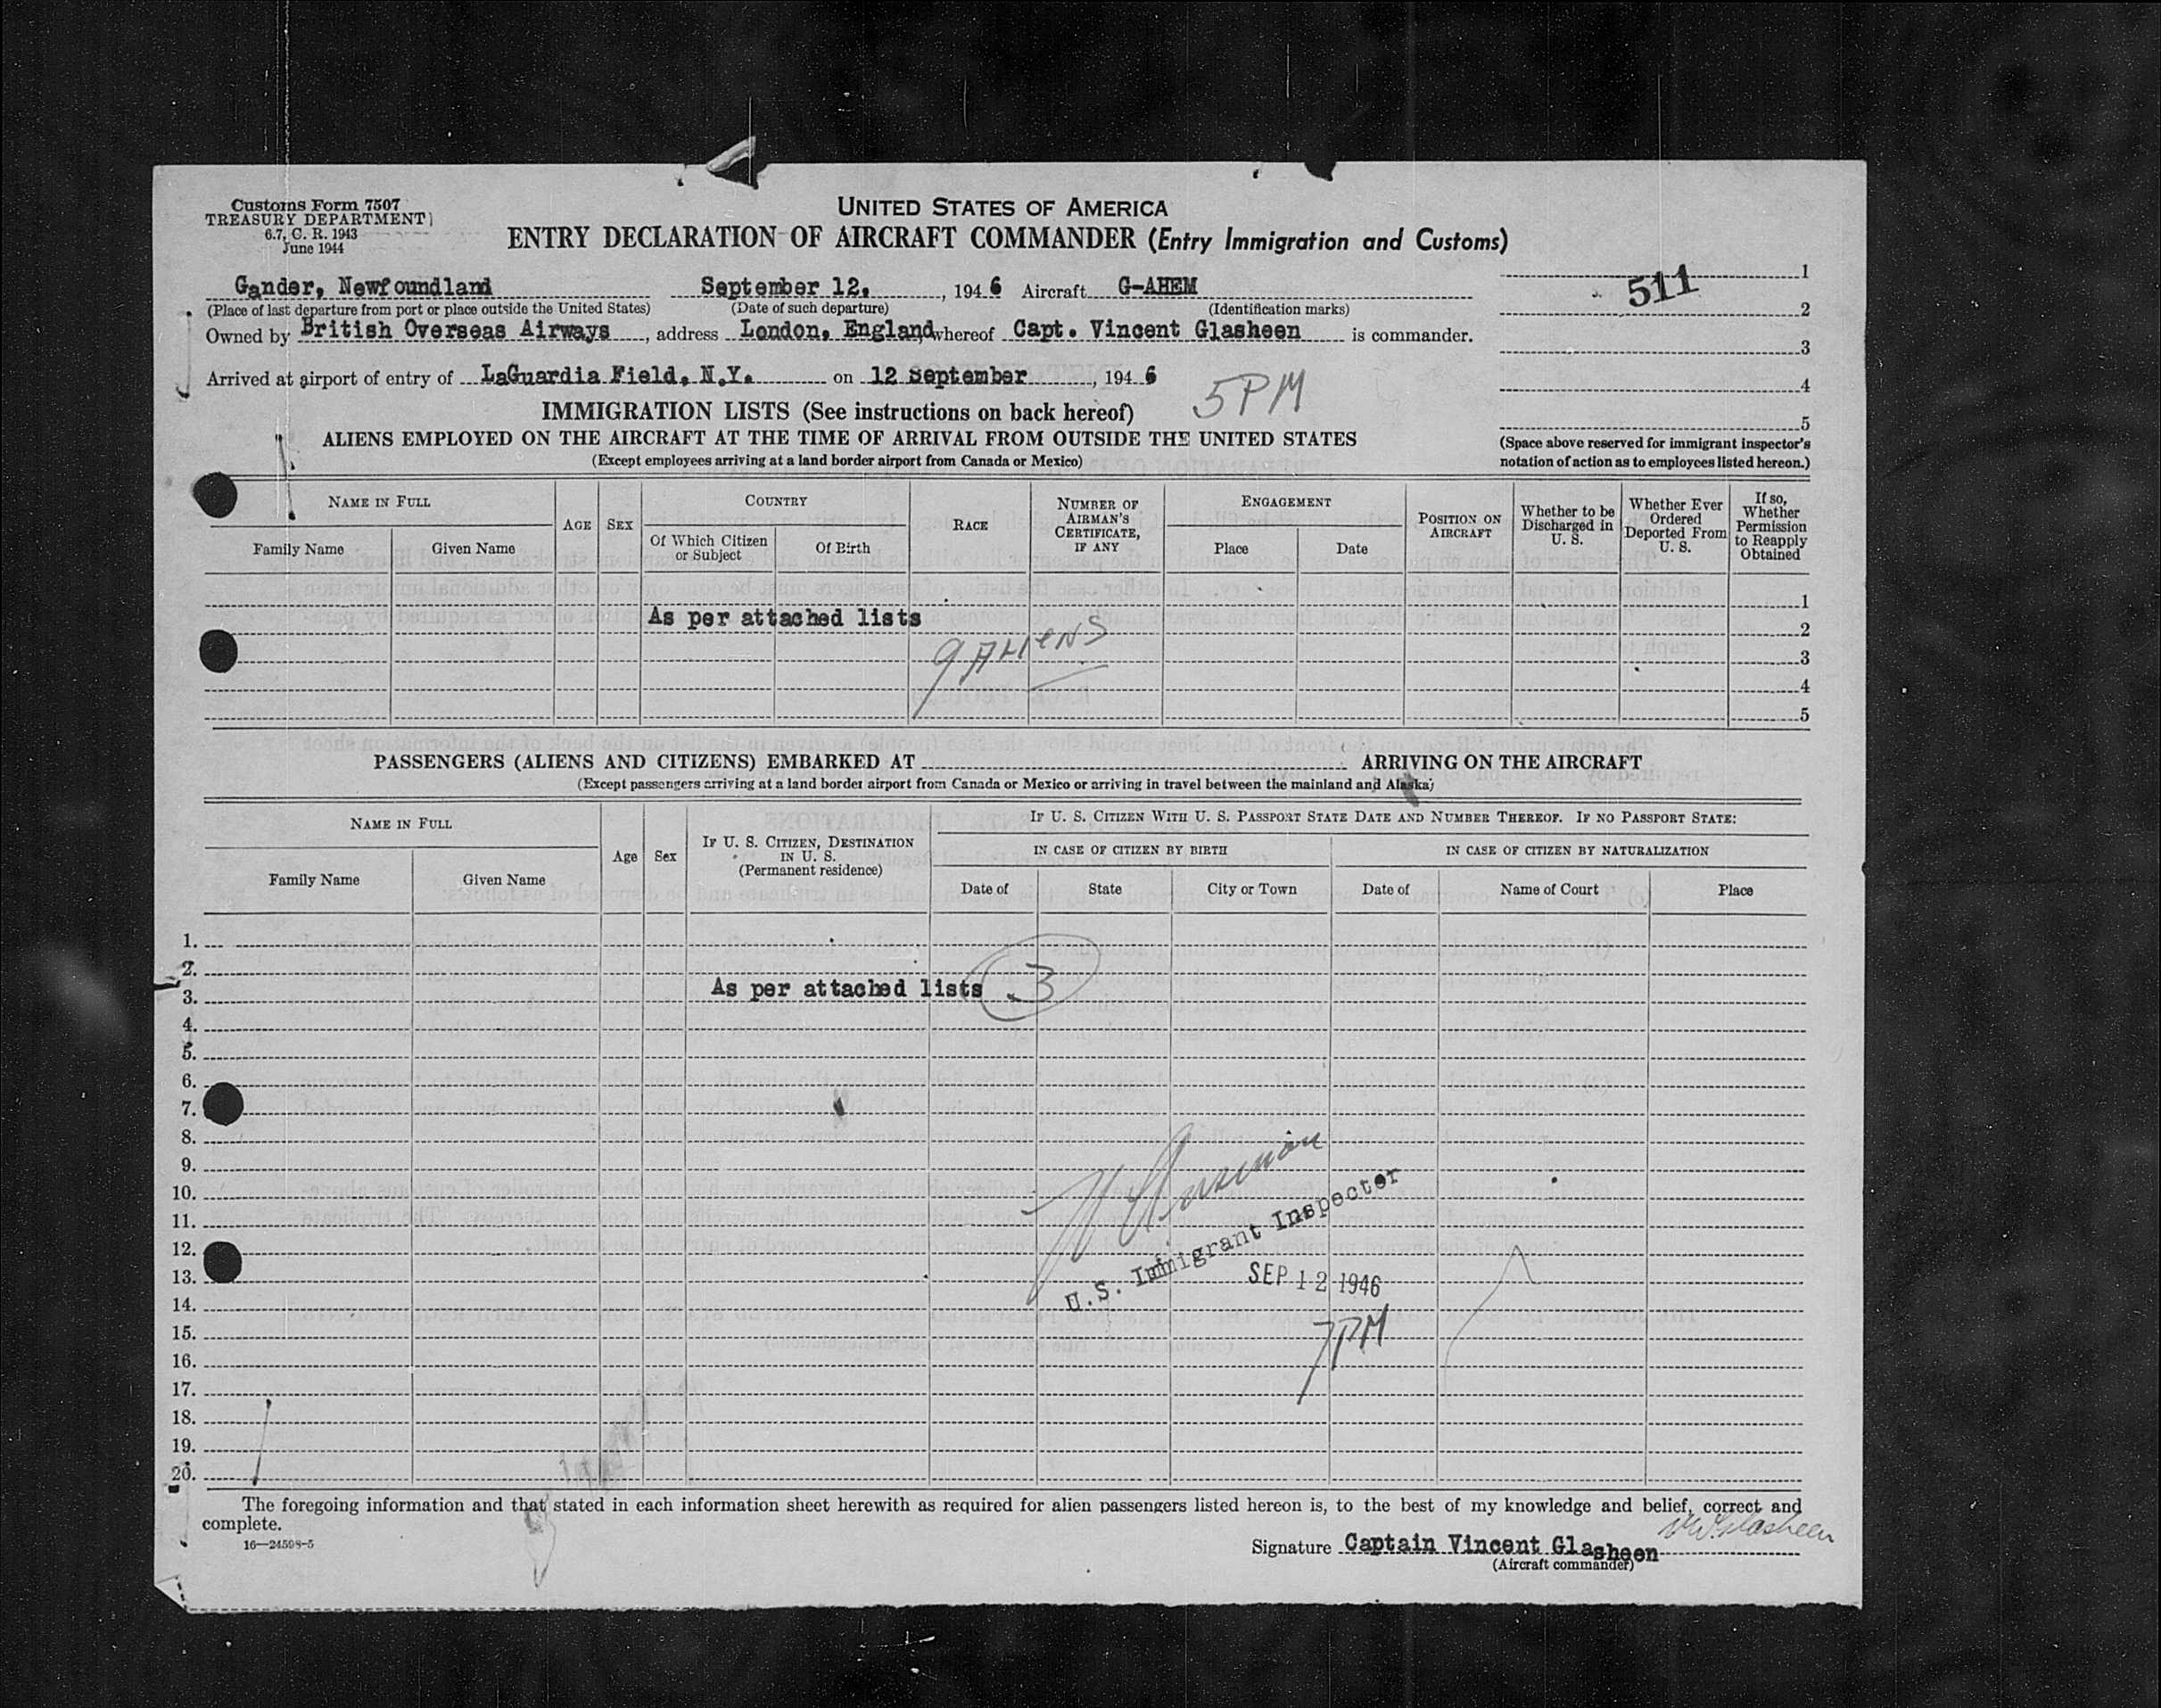 Customs Form 7507
TREASURY DEPARTMENT
6.7, C. R. 1943
June 1944
UNITED STATES OF AMERICA
ENTRY DECLARATION OF AIRCRAFT COMMANDER (Entry Immigration and Customs)
Gander, Newfoundland September 12, , 1946 Aircraft G-AHEM
(Place of last departure from port or place outside the United States) (Date of such departure) (Identification marks)
Owned by British Overseas Airways, address London, England, whereof Capt. Vincent Glasheen is commander.
Arrived at airport of entry of LaGuardia Field, N.Y. on 12 September, 1946
5PM
511
1
2
3
4
5
(Space above reserved for immigrant inspector's
notation of action as to employees listed hereon.)
IMMIGRATION LISTS (See instructions on back hereof)
ALIENS EMPLOYED ON THE AIRCRAFT AT THE TIME OF ARRIVAL FROM OUTSIDE THE UNITED STATES
(Except employees arriving at a land border airport from Canada or Mexico)
NAME IN FULL
Family Name Given Name
AGE
SEX
COUNTRY
Of Which Citizen
or Subject
Of Birth
RACE
NUMBER OF
AIRMAN'S
CERTIFICATE,
IF ANY
ENGAGEMENT
Place Date
POSITION ON
AIRCRAFT
Whether to be
Discharged in
U. S.
Whether Ever
Ordered
Deported From
U. S.
If so,
Whether
Permission
to Reapply
Obtained
1
As per attached lists
2
9 ALIENS
3
4
5
PASSENGERS (ALIENS AND CITIZENS) EMBARKED AT ARRIVING ON THE AIRCRAFT
(Except passengers arriving at a land border airport from Canada or Mexico or arriving in travel between the mainland and Alaska)
NAME IN FULL
Family Name Given Name
Age
Sex
IF U. S. CITIZEN, DESTINATION
IN U. S.
(Permanent residence)
IF U. S. CITIZEN WITH U. S. PASSPORT STATE DATE AND NUMBER THEREOF. IF NO PASSPORT STATE:
IN CASE OF CITIZEN BY BIRTH IN CASE OF CITIZEN BY NATURALIZATION
Date of State City or Town Date of Name of Court Place
1.
2.
3. As per attached lists 3
4.
5.
6.
7.
8.
9.
10.
11.
12.
13.
14.
15.
16.
17.
18.
19.
20.
U.S. Immigrant Inspector
SEP 12 1946
7PM
The foregoing information and that stated in each information sheet herewith as required for alien passengers listed hereon is, to the best of my knowledge and belief, correct and
complete.
16—24598-5
Signature Captain Vincent Glasheen
V W Glasheen
(Aircraft commander)